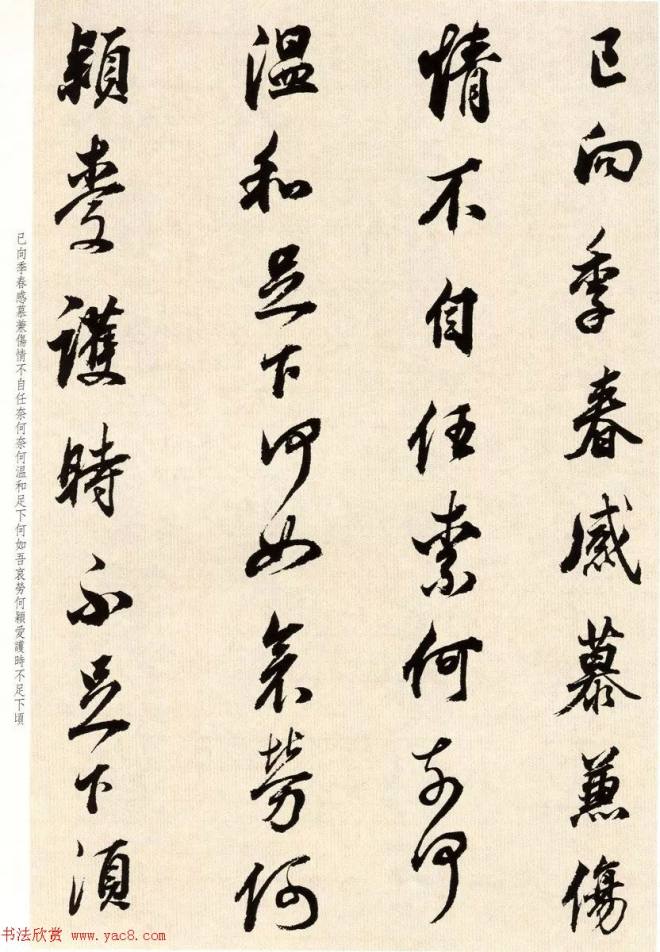 已向季春感慕兼傷
情不自任奈何奈何
溫和足下何如哀勞何
穎愛護時不足下須
已向季春感慕兼傷情不自任奈何奈何溫和足下何如吾哀勞何穎愛護時不足下頃
书法欣赏 www.yac8.com